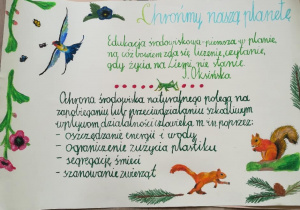 Chrońmy naszą planetę
Edukacja środowiskowa-pierwsza w planie
na cóż bowiem zda się liczenie, czytanie,
gdy życia na Ziemi nie stanie
Ochrona środowiska naturalnego polega na
zapobieganiu lub przeciwdziałaniu szkodliwym
wpływom działalności człowieka m.in poprzez:
- oszczędzanie energii i wody
- ograniczenie zużycia plastiku
- segregację śmieci
- szanowanie zwierząt